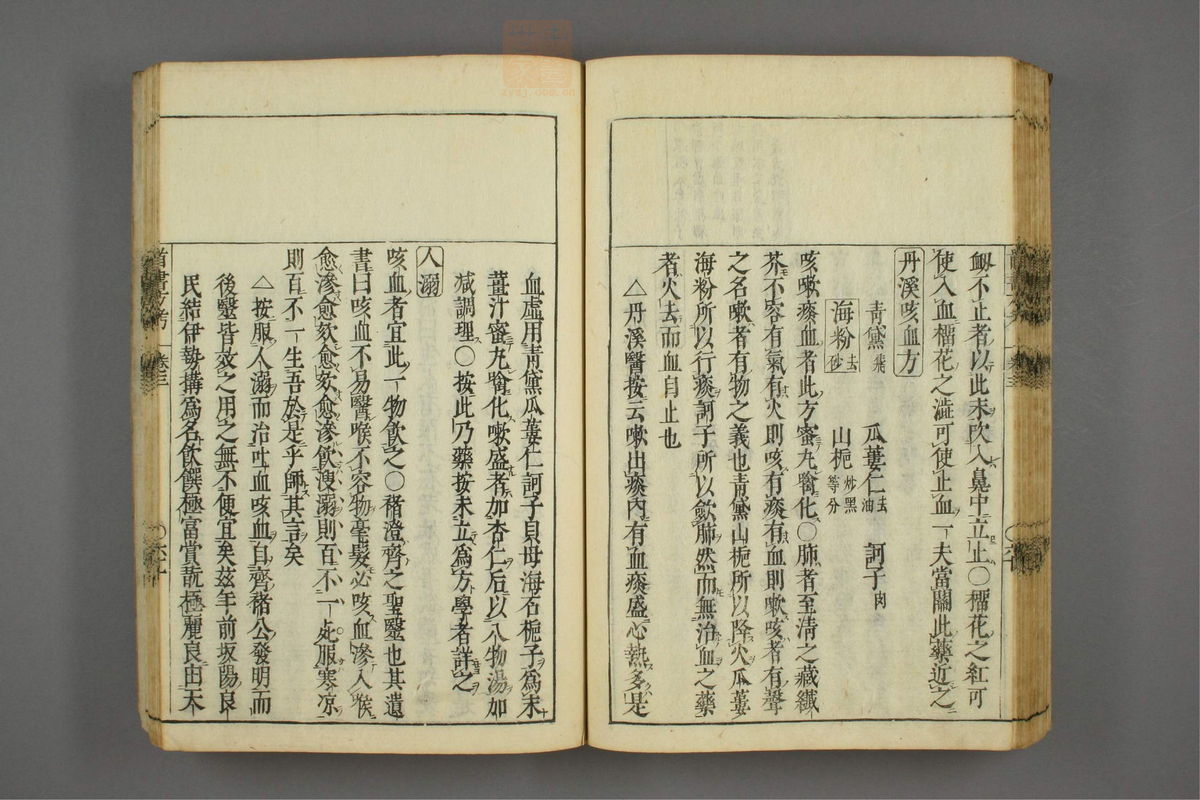 衂不止者以此末吹入鼻中立止○榴花之紅可
使入血榴花之澁可使止血一夫當關此藥近之
丹溪咳血方
青黛飛 瓜蔞仁去油 訶子肉
海粉去砂 山梔炒黑等分
咳嗽痰血者此方蜜丸噙化○肺者至清之藏纎
芥不容有氣有火則咳有痰有血則嗽咳者有聲
之名嗽者有物之義也青黛山梔所以降火瓜蔞
海粉所以行痰訶子所以斂肺然而無治血之藥
者火去而血自止也
△丹溪醫按云嗽出痰內有血痰盛心熱多是
血虛用青黛瓜蔞仁訶子貝母海石梔子爲末
薑汁蜜丸噙化嗽盛者加杏仁后以八物湯加
减調理○按此乃藥按未立爲方學者詳之
人溺
咳血者宜此一物飲之○褚澄齊之聖醫也其遺
書曰咳血不易醫喉不容物毫髮必咳血滲入喉
愈滲愈欬愈欬愈滲飲溲溺則百不一死服寒凉
則百不一生吾於是乎師其言矣
△按服人溺而治吐血咳血自齊褚公發明而
後醫皆效之用之無不便宜矣兹年前坂陽良
民結伊勢搆爲名飲饌極富賞翫極麗良由天
首書方考 卷三
卷三